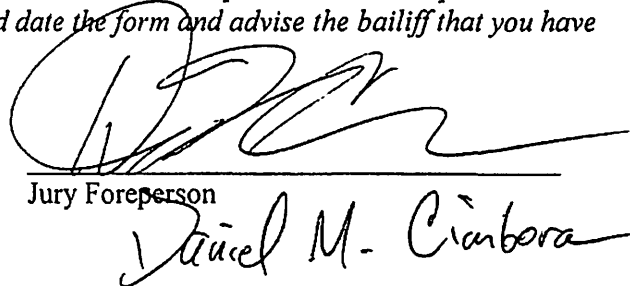 d date the form and advise the bailiff that you have
Jury Foreperson
Daniel M. Cimbora